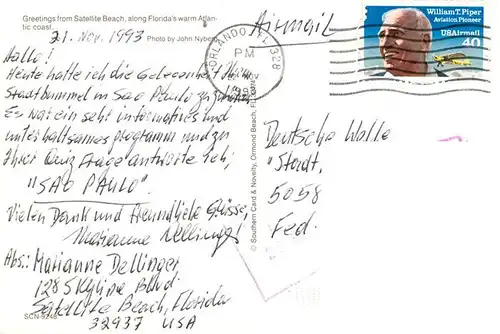 Greetings from Satellite Beach, along Florida's warm Atlan-
tic coast.
Photo by John Nyberg
21. Nov. 1993
Hallo!
Heute hatte ich die Gelegenheit Ihrem
Stadtbummel in Sao Paulo
Es war ein sehr informatives und
unterhaltsames programm und zu
Ihrer Quiz frage antworte ich;
"SAO PAULO".
Vielen Dank und freundliche Grüsse,
Marianne Dellinger
Abs.: Marianne Dellinger
1285 Skyline Blvd.
Satellite Beach, Florida
32937 USA
SCN-9248
© Southern Card & Novelty, Ormond Beach, FL
ORLANDO, FL 328
PM
NOV
Airmail
William T. Piper
Aviation Pioneer
USAirmail
40
Deutsche Welle
"Stadt,
5058
Fed.